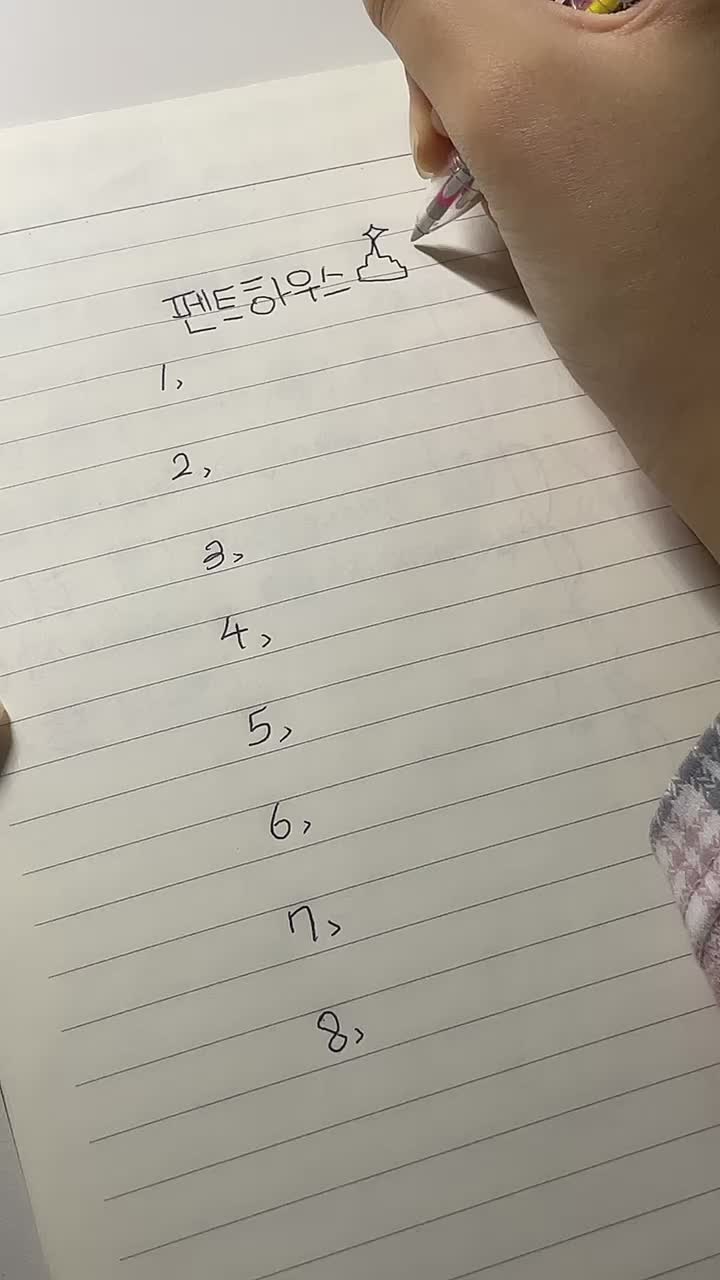 펜트하우스
1,
2,
3,
4,
5,
6,
7,
8,